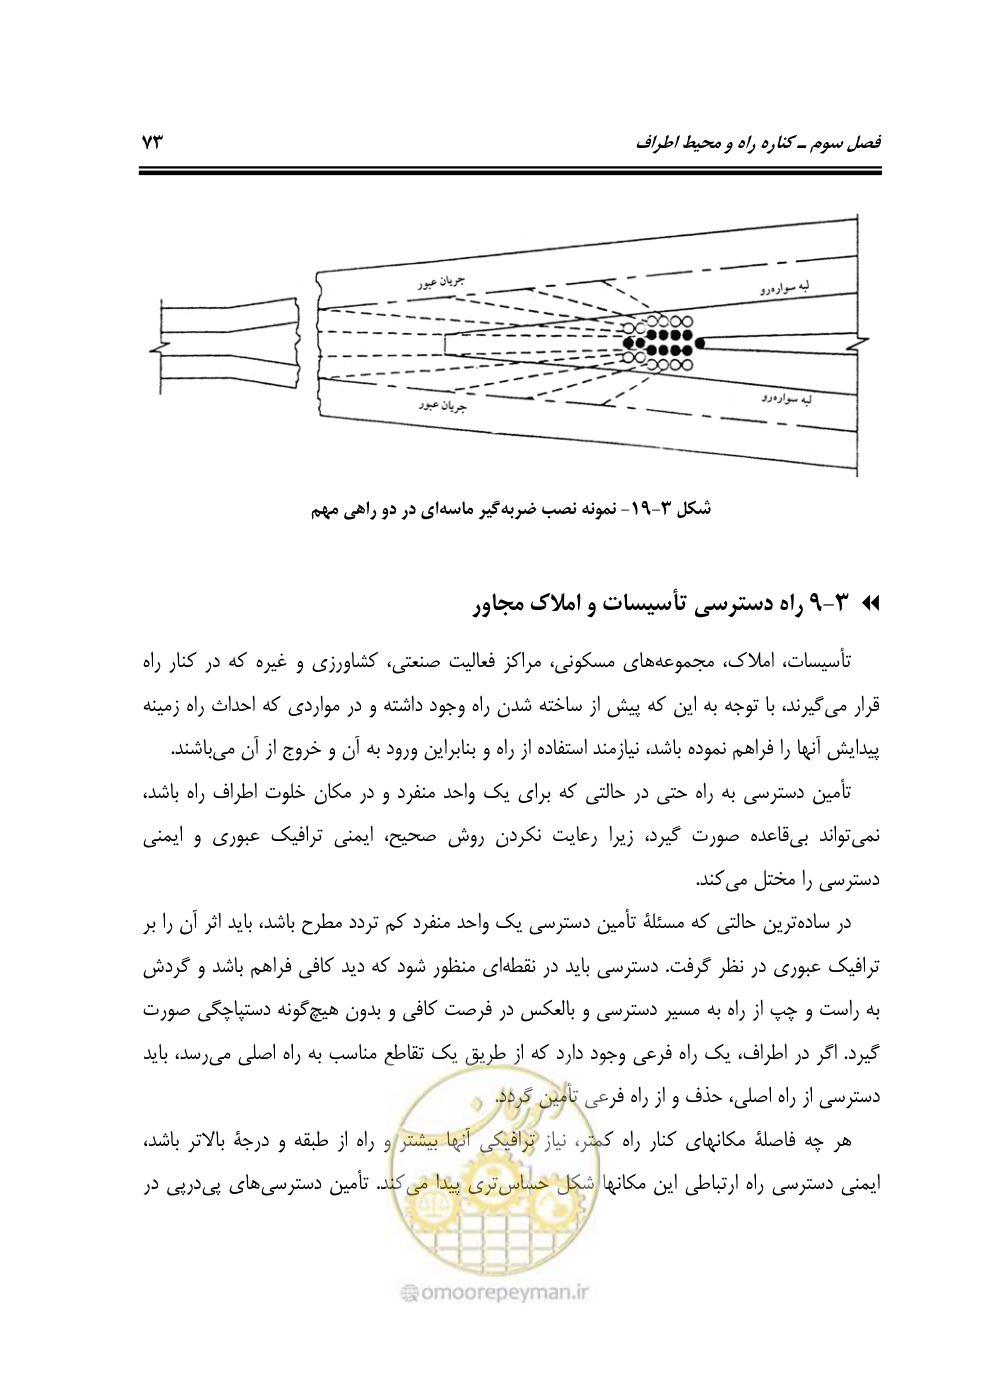 فصل سوم ـ کناره راه و محیط اطراف ۷۳
جریان عبور
لبه سواره‌رو
جریان عبور
لبه سواره‌رو
شکل ۳-۱۹- نمونه نصب ضربه‌گیر ماسه‌ای در دو راهی مهم
۳-۹ راه دسترسی تأسیسات و املاک مجاور
تأسیسات، املاک، مجموعه‌های مسکونی، مراکز فعالیت صنعتی، کشاورزی و غیره که در کنار راه
قرار می‌گیرند، با توجه به این که پیش از ساخته شدن راه وجود داشته و در مواردی که احداث راه زمینه
پیدایش آنها را فراهم نموده باشد، نیازمند استفاده از راه و بنابراین ورود به آن و خروج از آن می‌باشند.
تأمین دسترسی به راه حتی در حالتی که برای یک واحد منفرد و در مکان خلوت اطراف راه باشد،
نمی‌تواند بی‌قاعده صورت گیرد، زیرا رعایت نکردن روش صحیح، ایمنی ترافیک عبوری و ایمنی
دسترسی را مختل می‌کند.
در ساده‌ترین حالتی که مسئلۀ تأمین دسترسی یک واحد منفرد کم تردد مطرح باشد، باید اثر آن را بر
ترافیک عبوری در نظر گرفت. دسترسی باید در نقطه‌ای منظور شود که دید کافی فراهم باشد و گردش
به راست و چپ از راه به مسیر دسترسی و بالعکس در فرصت کافی و بدون هیچ‌گونه دستپاچگی صورت
گیرد. اگر در اطراف، یک راه فرعی وجود دارد که از طریق یک تقاطع مناسب به راه اصلی می‌رسد، باید
دسترسی از راه اصلی، حذف و از راه فرعی تأمین گردد.
هر چه فاصلۀ مکانهای کنار راه کمتر، نیاز ترافیکی آنها بیشتر و راه از طبقه و درجۀ بالاتر باشد،
ایمنی دسترسی راه ارتباطی این مکانها شکل حساس‌تری پیدا می‌کند. تأمین دسترسی‌های پی‌درپی در
امور پیمان
omoorepeyman.ir